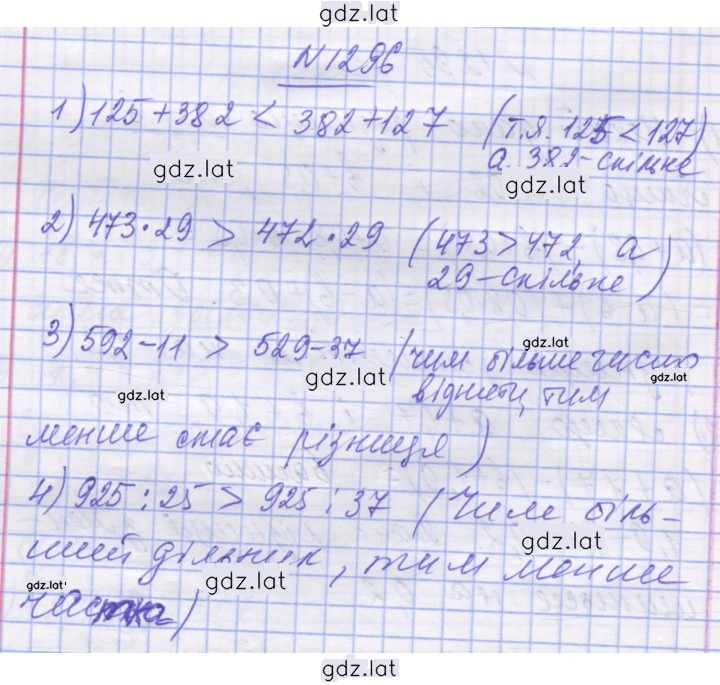 gdz.lat
N1296
1) 125 + 382 < 382 + 127 (т.я. 125 < 127)
gdz.lat а. 382 - спільне
gdz.lat
2) 473 • 29 > 472 • 29 (473 > 472, а
29 - спільне)
3) 592 - 11 > 529 - 37 (чим більше число
gdz.lat
gdz.lat
gdz.lat
gdz.lat віднять, тим
менше стає різниця)
4) 925 : 25 > 925 : 37 (Чим біль-
gdz.lat
gdz.lat
ший дільник, тим менше
gdz.lat
gdz.lat
частка)
gdz.lat